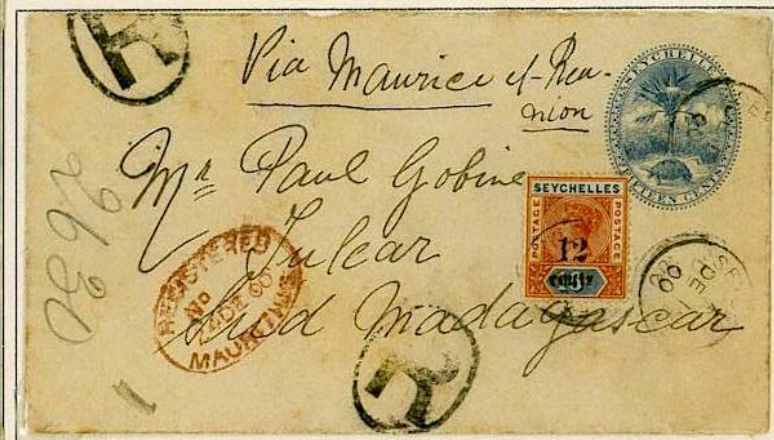 R
Via Maurice et Reu-
nion
SEYCHELLES
FIFTEEN CENTS
Mr Paul Gobine
Tulear
Sud Madagascar
SEYCHELLES
POSTAGE
POSTAGE
12
cents
REGISTERED
No
DE 00
MAURITIUS
SEY
DE
00
R
2630
1